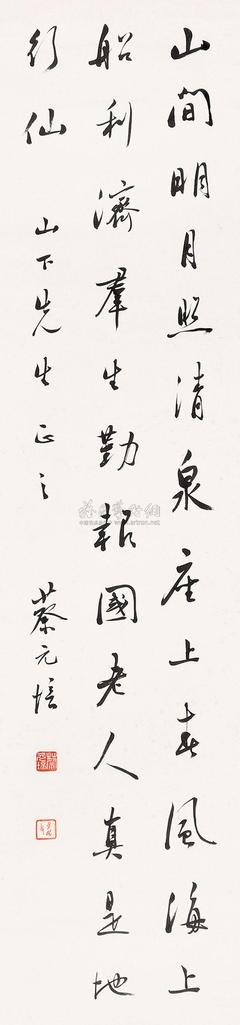 山間明月照清泉座上春風海上
船利濟羣生勤報國老人真是地
行仙
山下先生正之
蔡元培